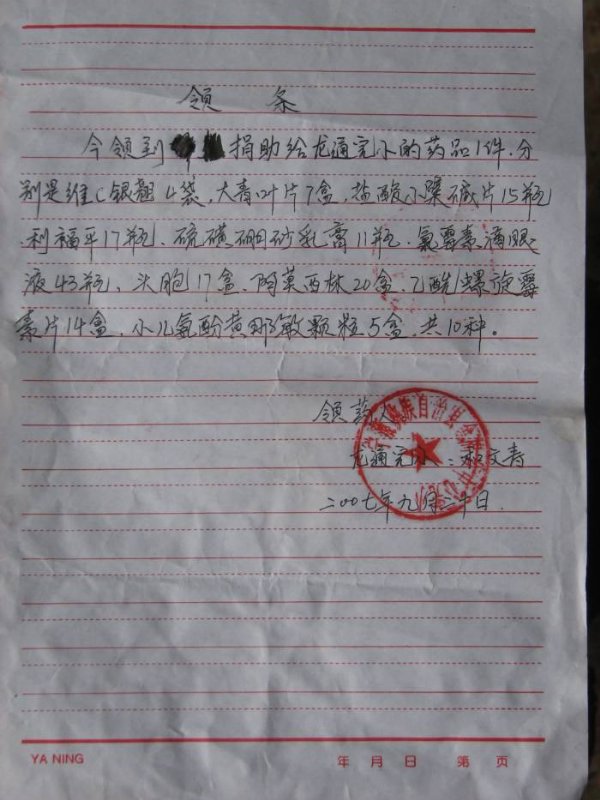 领 条
今领到 捐助给龙通完小的药品1件.分
别是维C银翘4袋、大青叶片7盒、盐酸小檗碱片15瓶
、利福平17瓶、硫磺硼砂乳膏11瓶、氯霉素滴眼
液43瓶、头胞17盒、阿莫西林20盒、乙酰螺旋霉
素片14盒、小儿氨酚黄那敏颗粒5盒.共10种。
领药人
龙通完小:和文寿
二00七年九月二十日.
族自治县
YA NING
年 月 日 第 页